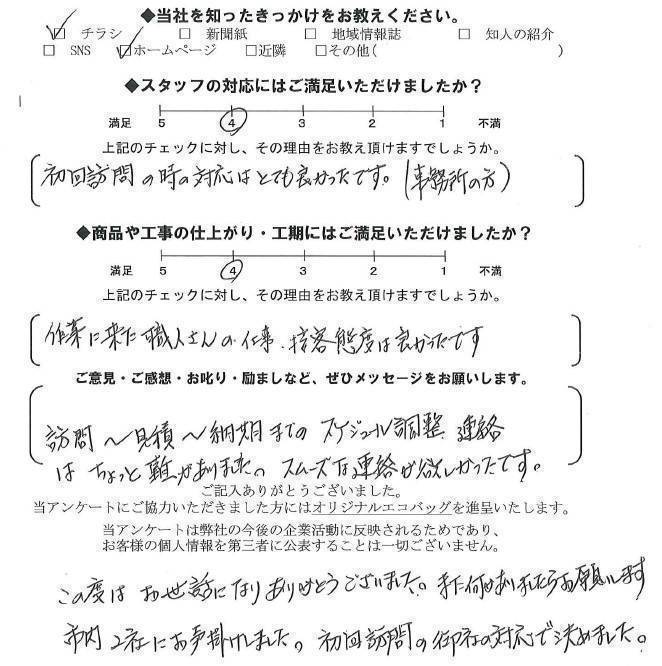 ◆当社を知ったきっかけをお教えください。
☑ チラシ □ 新聞紙 □ 地域情報誌 □ 知人の紹介
□ SNS ☑ホームページ □近隣 □その他( )
◆スタッフの対応にはご満足いただけましたか？
満足 5 4 3 2 1 不満
上記のチェックに対し、その理由をお教え頂けますでしょうか。
初回訪問の時の対応はとても良かったです。(事務所の方)
◆商品や工事の仕上がり・工期にはご満足いただけましたか？
満足 5 4 3 2 1 不満
上記のチェックに対し、その理由をお教え頂けますでしょうか。
作業に来た職人さんの仕事・接客態度は良かったです
ご意見・ご感想・お叱り・励ましなど、ぜひメッセージをお願いします。
訪問～見積～納期までのスケジュール調整 連絡
はちょっと難がありました。スムーズな連絡が欲しかったです。
ご記入ありがとうございました。
当アンケートにご協力いただきました方にはオリジナルエコバッグを進呈いたします。
当アンケートは弊社の今後の企業活動に反映されるためであり、
お客様の個人情報を第三者に公表することは一切ございません。
この度はお世話になりありがとうございました。また何かありましたらお願いします
市内2社にお声掛けしました。初回訪問の御社の対応で決めました。